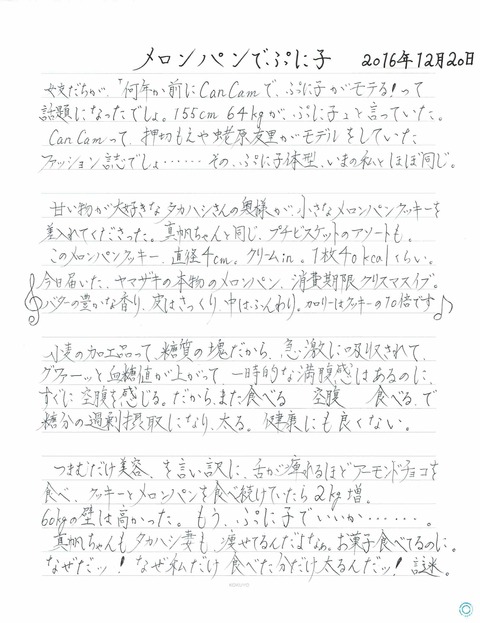 メロンパンでぷに子 2016年12月20日
友だちが、「何年か前にCanCamで、ぷに子がモテる!って
話題になったでしょ。155cm 64kgが、ぷに子」と言っていた。
CanCamって、押切もえや蛯原友里がモデルをしていた
ファッション誌でしょ……その、ぷに子体型、いまの私とほぼ同じ。
甘い物が大好きなタカハシさんの奥様が、小さなメロンパンクッキーを
差入れてくださった。真帆ちゃんと同じ、プチビスケットのアソートも。
このメロンパンクッキー、直径4cm。クリームin。1枚40kcalくらい。
今日届いた、ヤマザキの本物のメロンパン、消費期限クリスマスイブ。
バターの豊かな香り、皮はさっくり、中はふんわり。カロリーはクッキーの10倍です
小麦の加工品って、糖質の塊だから、急激に吸収されて、
グァーッと血糖値が上がって、一時的な満腹感はあるのに、
すぐに空腹を感じる。だから、また食べる 空腹 食べる、で
糖分の過剰摂取になり、太る。健康にも良くない。
つまむだけ美容、を言い訳に、舌が痺れるほどアーモンドチョコを
食べ、クッキーとメロンパンを食べ続けていたら2kg増。
60kgの壁は高かった。もう、ぷに子でいいか……。
真帆ちゃんもタカハシ妻も、痩せてるんだよなぁ。お菓子食べてるのに。
なぜだッ!なぜ私だけ食べた分だけ太るんだッ!謎。
KOKUYO